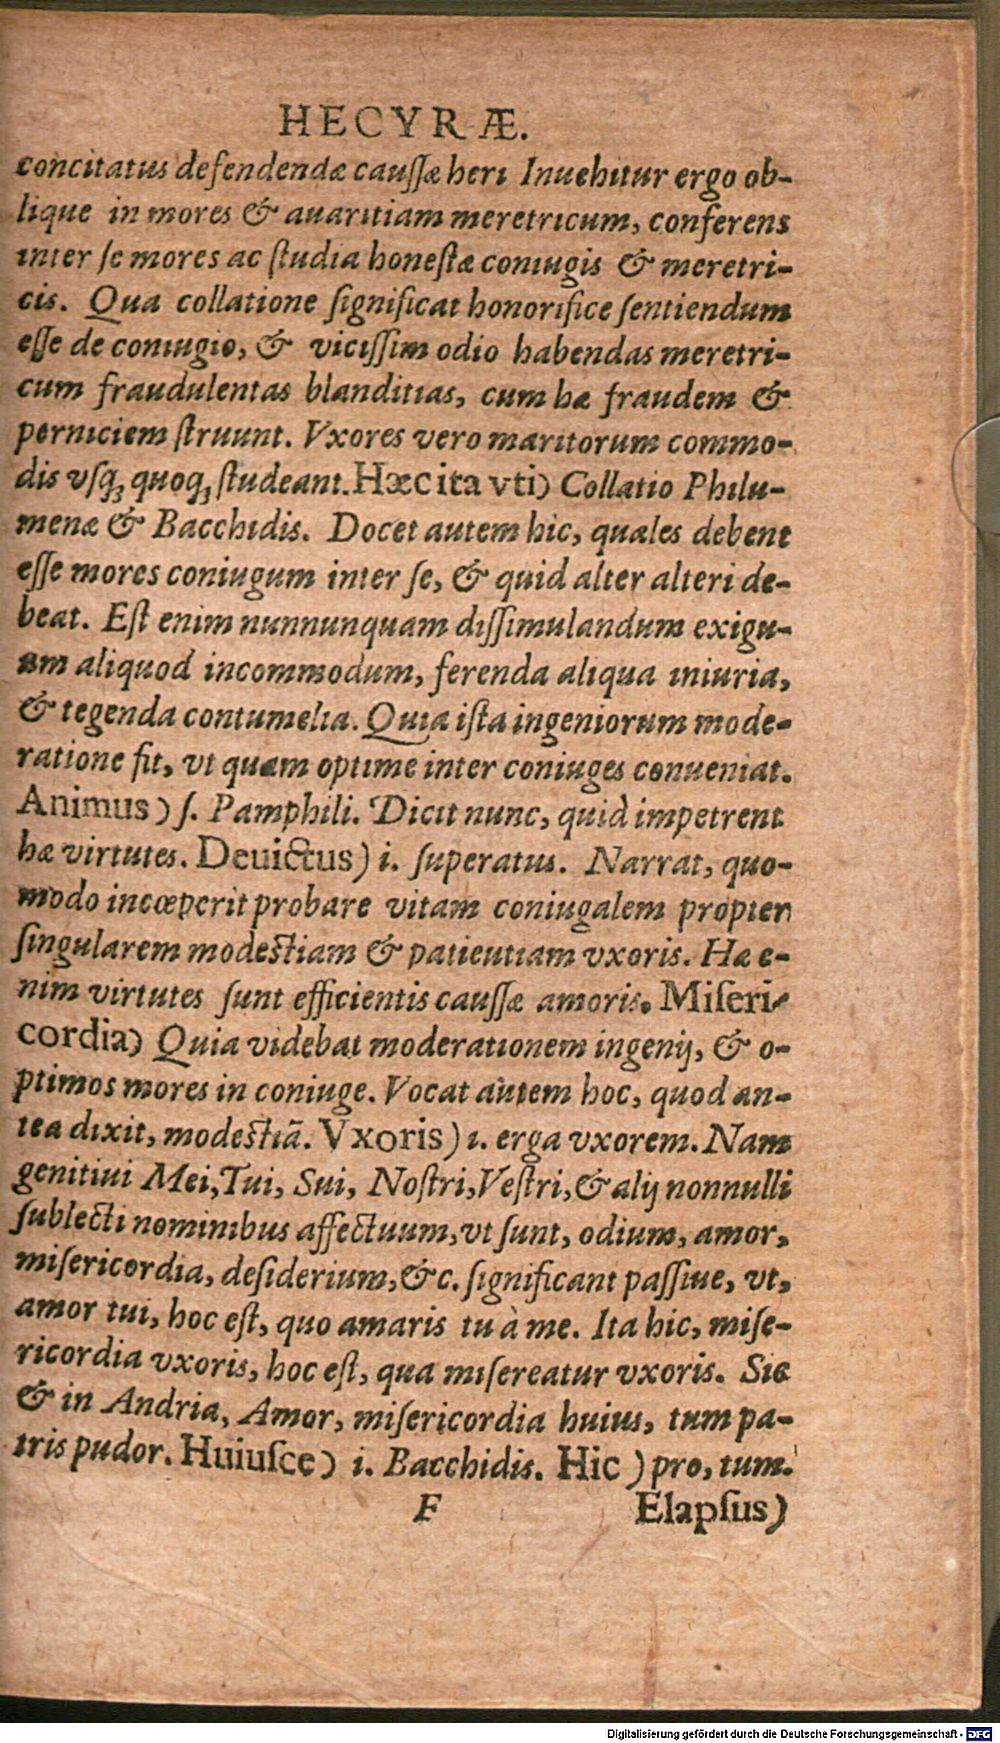 HECYRÆ.
concitatus defendendæ cauſſæ heri Inuehitur ergo ob-
lique in mores & auaritiam meretricum, conferens
inter ſe mores ac ſtudia honeſtæ coniugis & meretri-
cis. Qua collatione ſignificat honorifice ſentiendum
eſſe de coniugio, & viciſſim odio habendas meretri-
cum fraudulentas blanditias, cum hæ fraudem &
perniciem ſtruunt. Vxores vero maritorum commo-
dis vſq; quoq; ſtudeant. Hæc ita vti) Collatio Philu-
menæ & Bacchidis. Docet autem hic, quales debent
eſſe mores coniugum inter ſe, & quid alter alteri de-
beat. Eſt enim nunnunquam diſſimulandum exigu-
um aliquod incommodum, ferenda aliqua iniuria,
& tegenda contumelia. Quia iſta ingeniorum mode-
ratione fit, vt quam optime inter coniuges conueniat.
Animus) ſ. Pamphili. Dicit nunc, quid impetrent
hæ virtutes. Deuictus) i. ſuperatus. Narrat, quo-
modo incœperit probare vitam coniugalem propter
ſingularem modeſtiam & patieutiam vxoris. Hæ e-
nim virtutes ſunt efficientis cauſſæ amoris. Miſeri-
cordia) Quia videbat moderationem ingenij, & o-
ptimos mores in coniuge. Vocat autem hoc, quod an-
tea dixit, modeſtiã. Vxoris) i. erga vxorem. Nam
genitiui Mei, Tui, Sui, Noſtri, Veſtri, & alij nonnulli
ſublecti nominibus affectuum, vt ſunt, odium, amor,
miſericordia, deſiderium, &c. ſignificant paſſiue, vt,
amor tui, hoc eſt, quo amaris tu à me. Ita hic, miſe-
ricordia vxoris, hoc eſt, qua miſereatur vxoris. Sic
& in Andria, Amor, miſericordia huius, tum pa-
tris pudor. Huiuſce) i. Bacchidis. Hic) pro, tum.
F Elapſus)
Digitalisierung gefördert durch die Deutsche Forschungsgemeinschaft - DFG